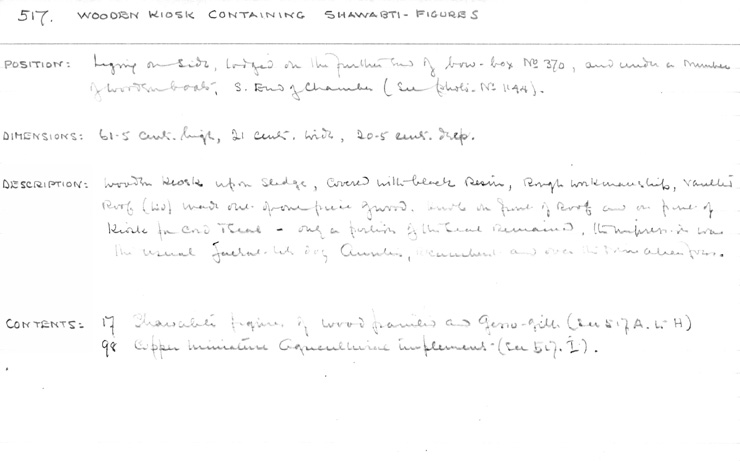 517. WOODEN KIOSK CONTAINING SHAWABTI-FIGURES
POSITION: Lying on side, lodged on the further end of bow-box No 370, and under a number
of wooden boats, S. End of Chamber (See photo. No 1144).
DIMENSIONS: 61·5 cent. high, 21 cent. wide, 20·5 cent. deep.
DESCRIPTION: Wooden Kiosk upon sledge, covered with black Resin, Rough workmanship, vaulted
Roof (lid) made out of one piece of wood. knob on front of Roof and on front of
Kiosk for Cord & Seal - only a portion of the Seal remained, the impression was
the usual Jackal-like dog Anubis, recumbent and over the nine alien foes.
CONTENTS: 17 Shawabti figures of wood painted and Gesso-gilt (See 517 A. to H)
98 Copper miniature agricultural implements (See 517. I).